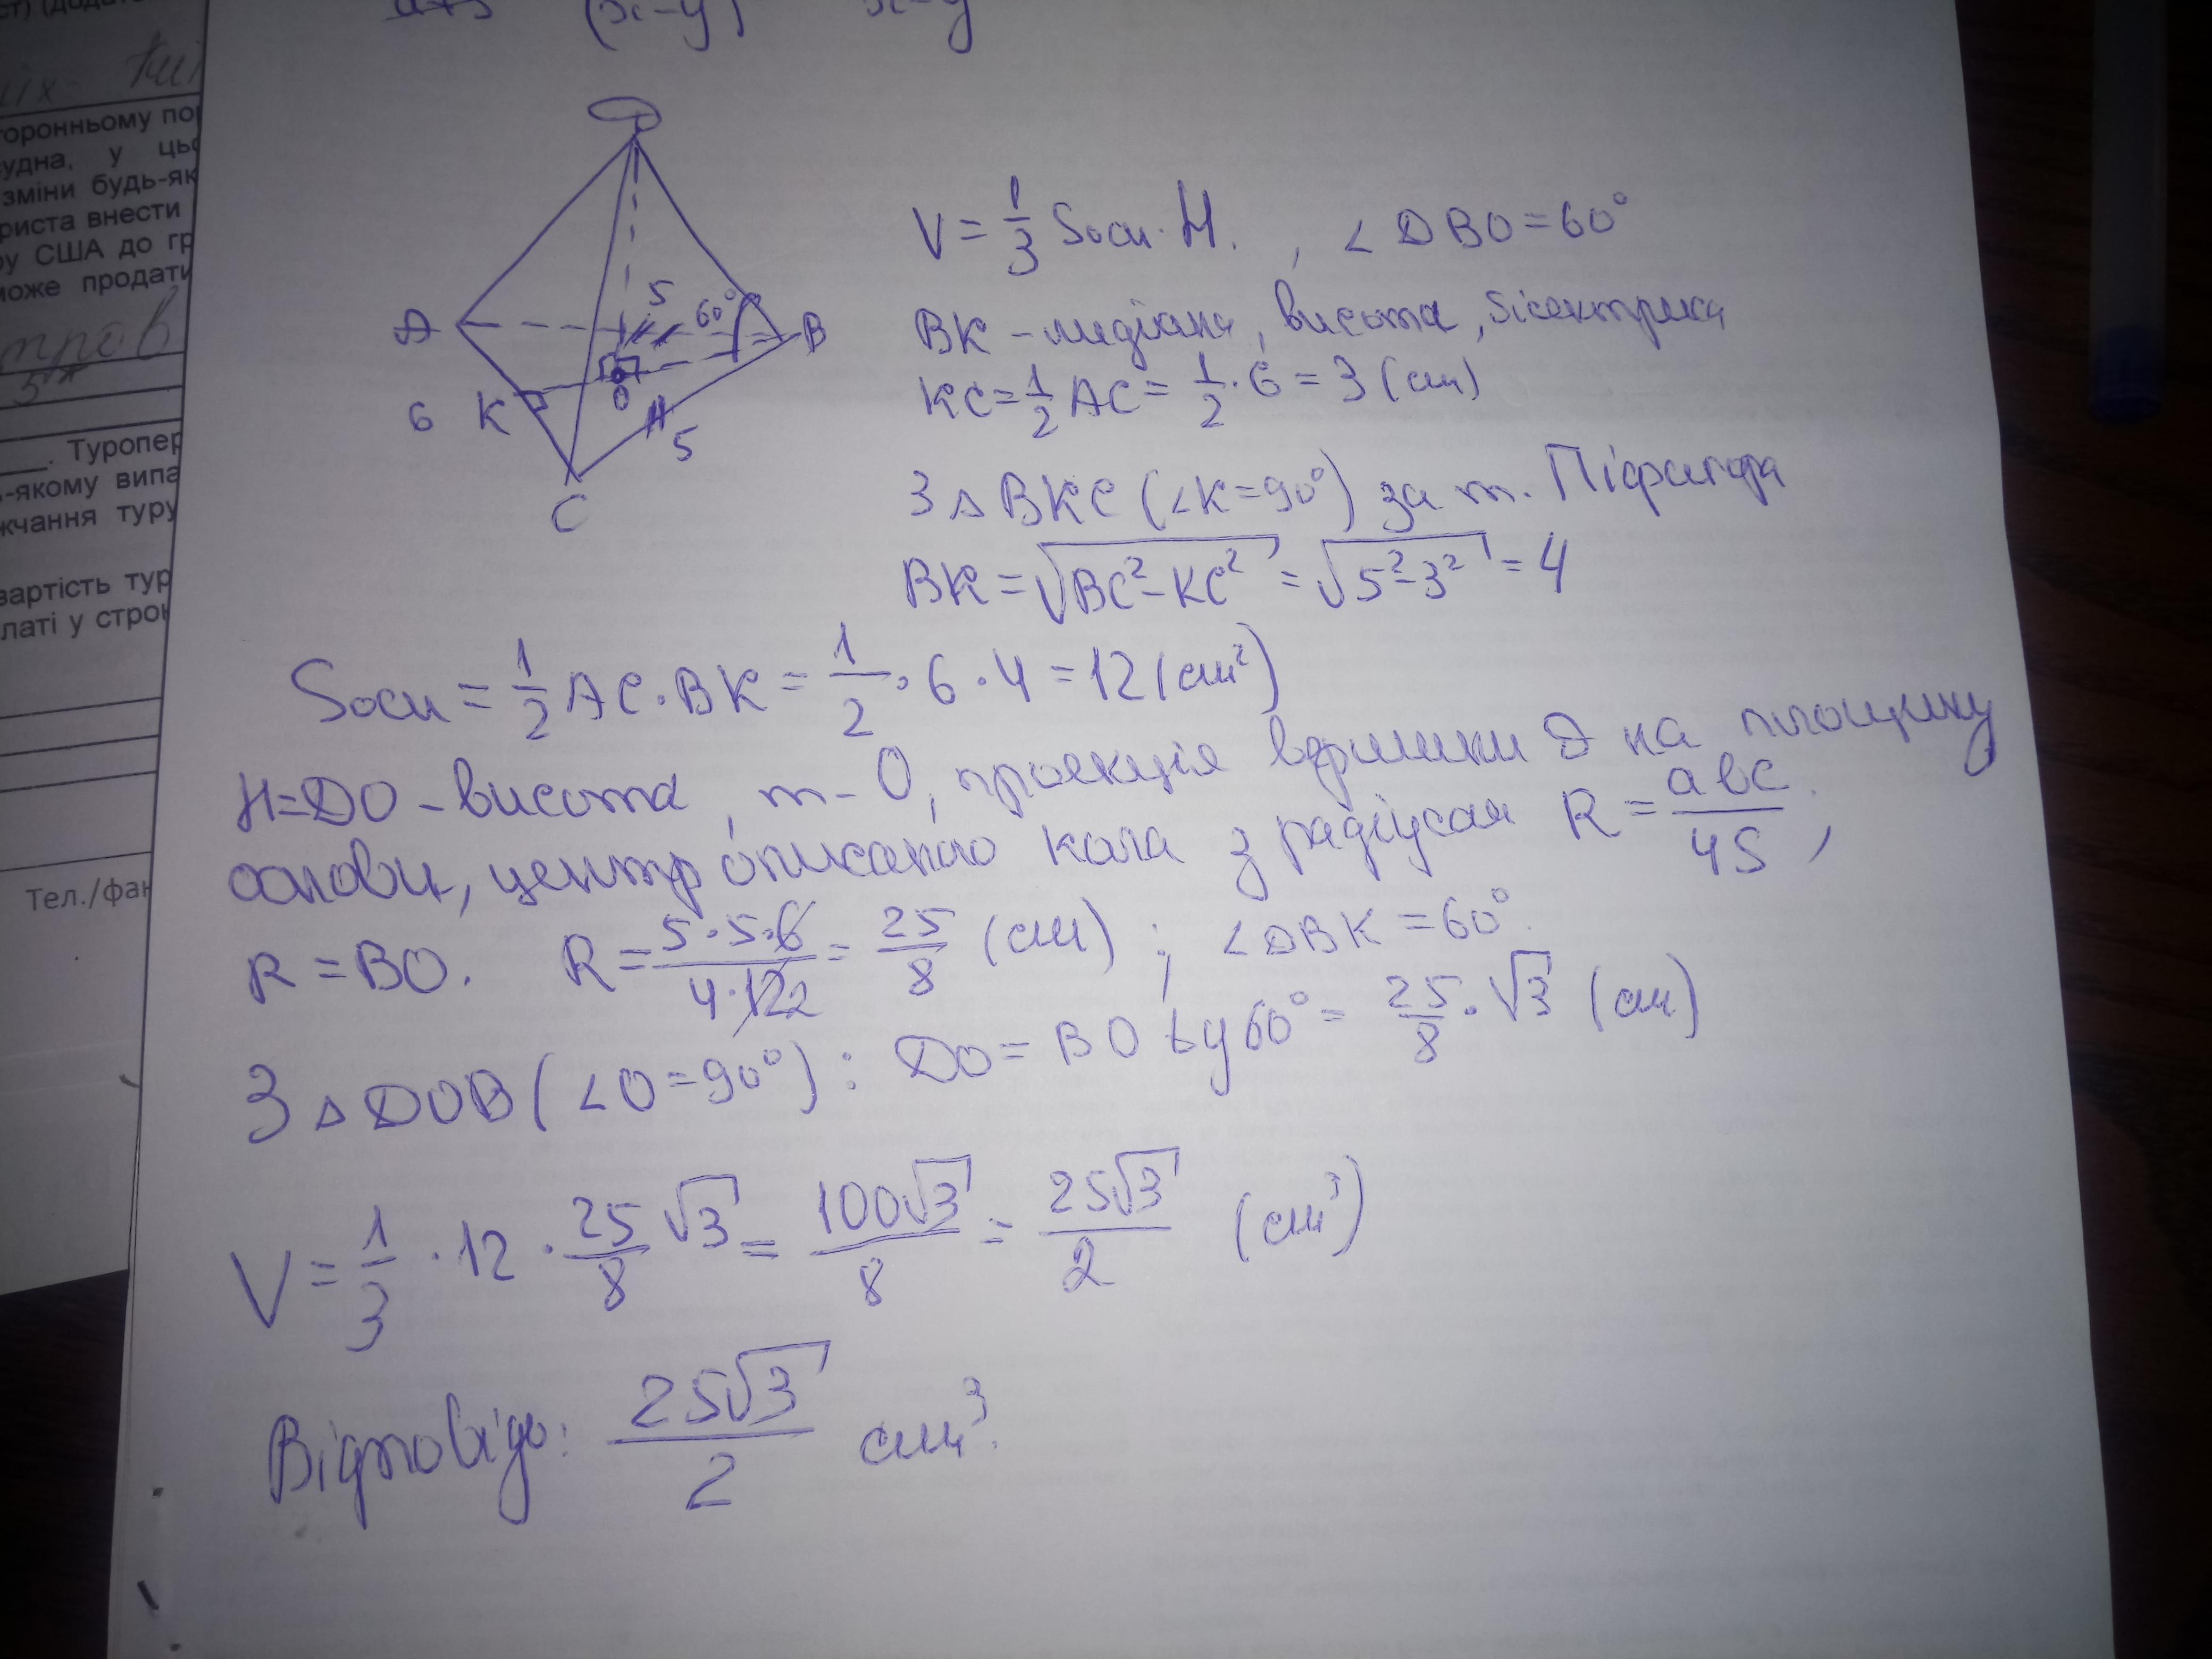 (x-y) x-y
ст)
іх-
торонньому пор
судна, у цьо
зміни будь-як
риста внести
ру США до гр
може продати
тров
5
. Туропер
-якому випа
жчання туру
вартість тур
латі у строк
Тел./фак
D
A
B
5
60°
6 K
O
5
C
V = 1/3 Sосн · H. , ∠DBO = 60°
BK - медіана, висота, бісектриса
KC = 1/2 AC = 1/2 · 6 = 3 (см)
З △ BKC (∠K = 90°) за т. Піфагора
BK = √(BC² - KC²) = √(5² - 3²) = 4
Sосн = 1/2 AC · BK = 1/2 · 6 · 4 = 12 (см²)
H = DO - висота, т - O, проекція вершини D на площину
основи, центр описаного кола з радіусом R = abc/4S,
R = BO. R = 5·5·6/4·12 2 = 25/8 (см) ; ∠DBK = 60°.
З △ DOB (∠O = 90°) : DO = BO tg 60° = 25/8 · √3 (см)
V = 1/3 · 12 · 25/8 √3 = 100√3/8 = 25√3/2 (см³)
Відповідь: 25√3/2 см³.